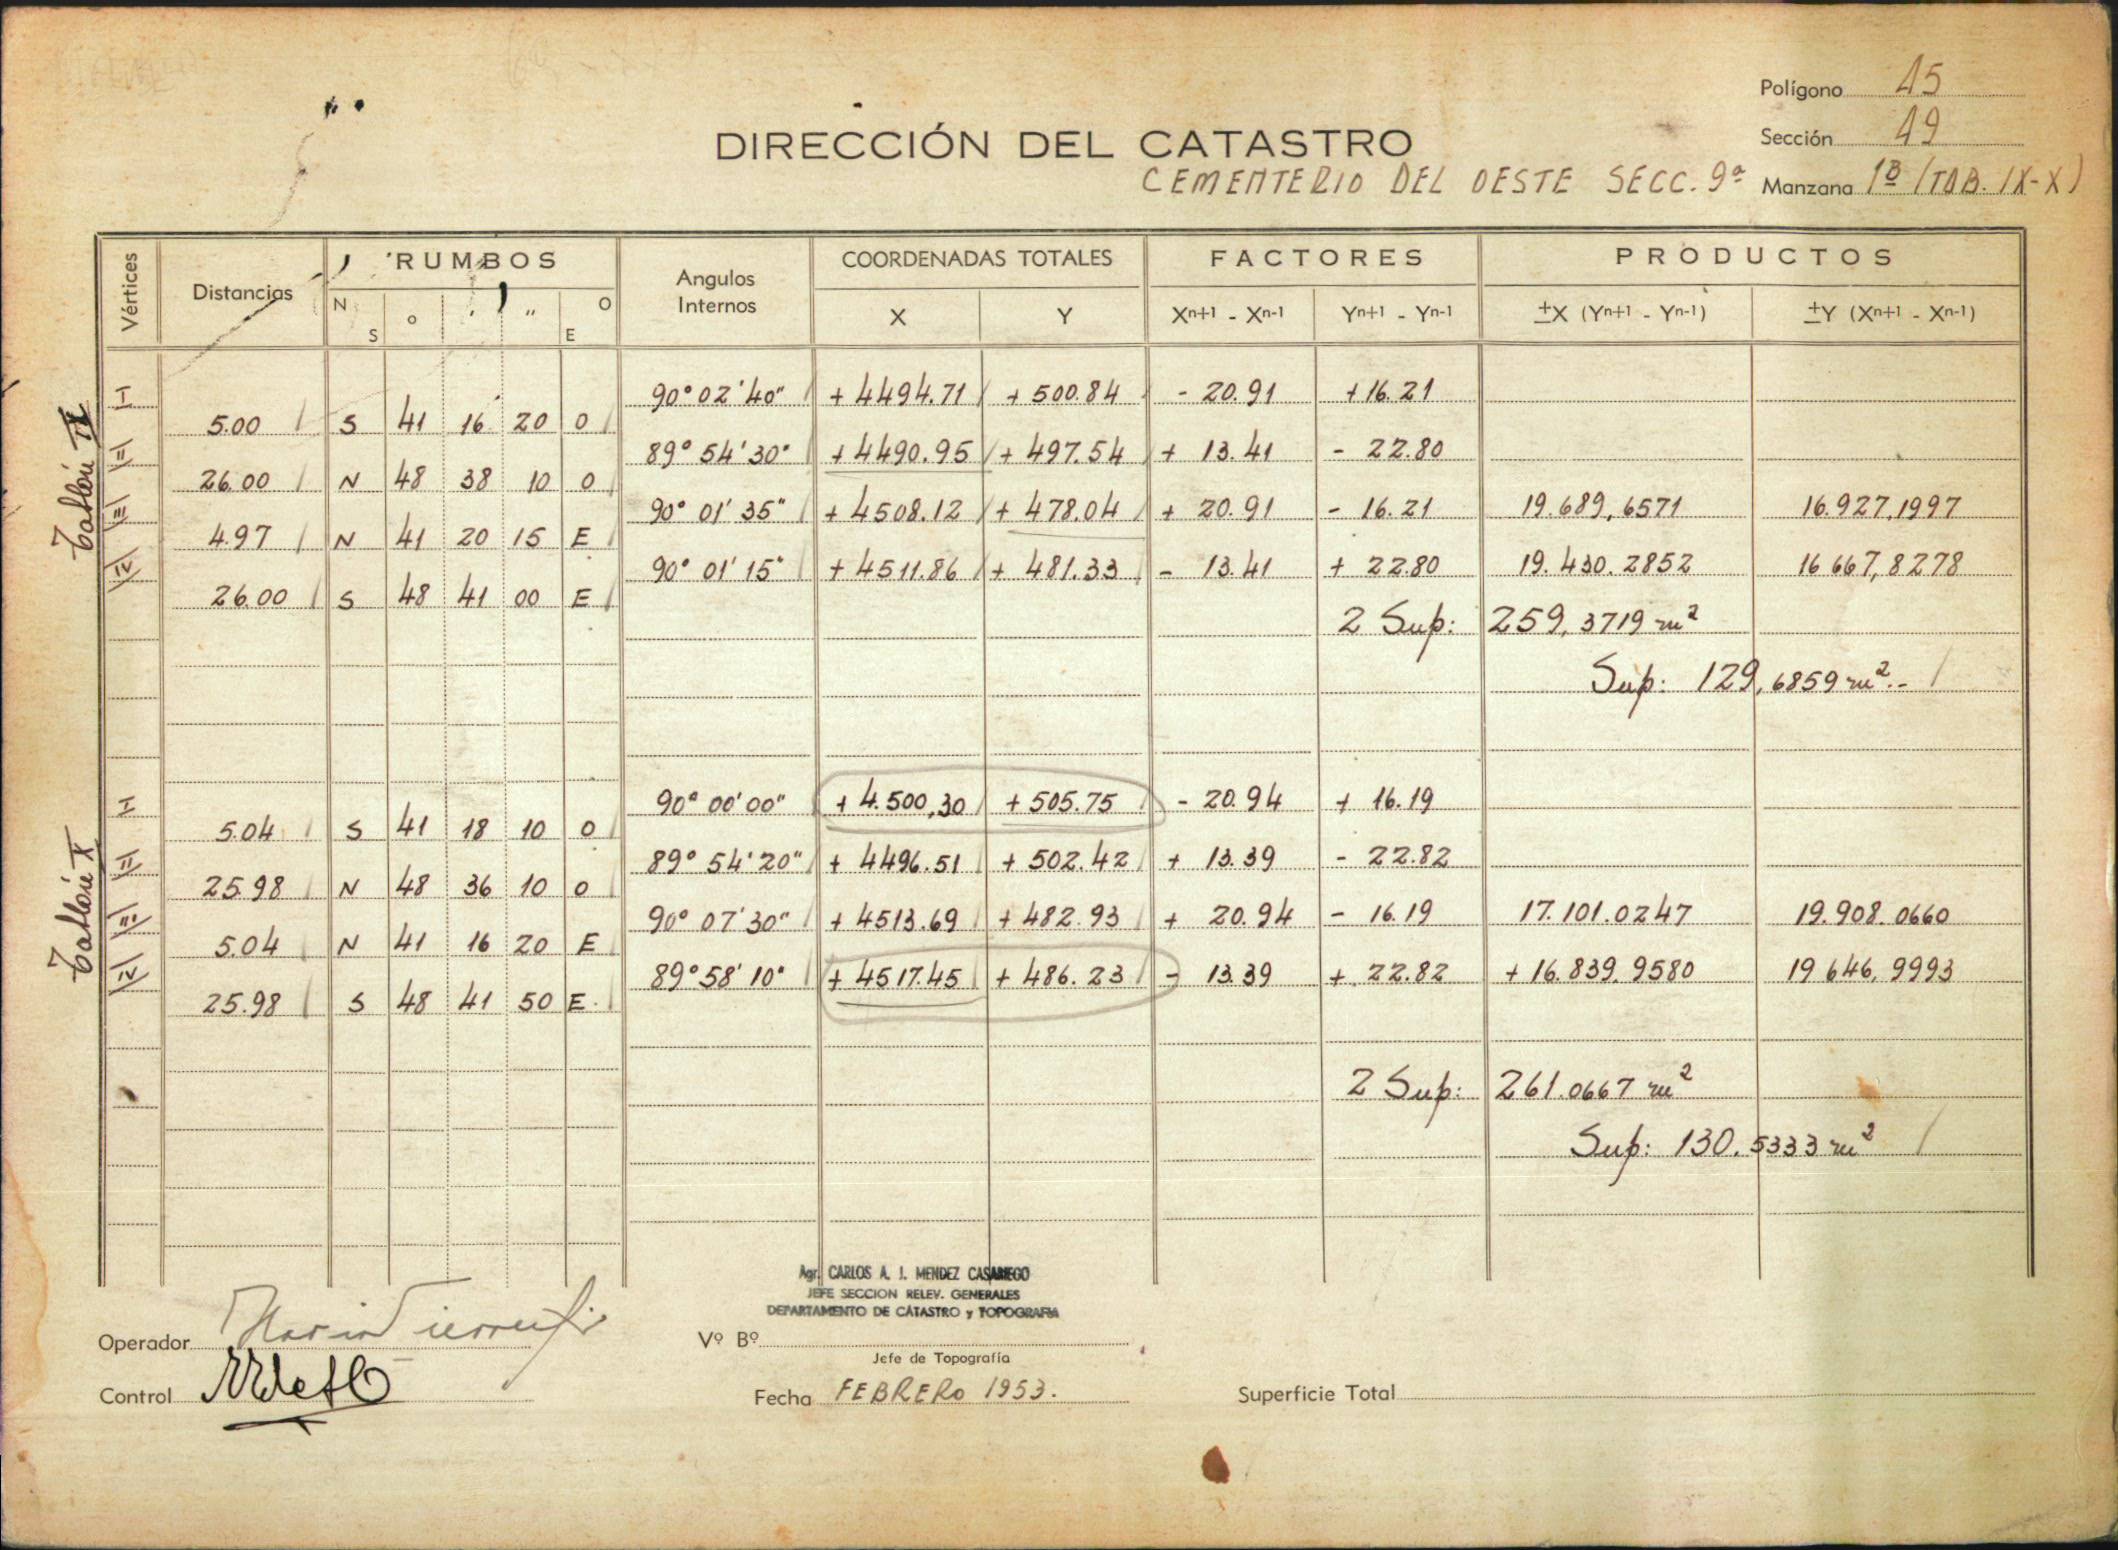 Polígono 15
Sección 49
DIRECCIÓN DEL CATASTRO
CEMENTERIO DEL OESTE SECC. 9ª Manzana 1B (TAB. IX-X)
Vértices Distancias RUMBOS Angulos Internos COORDENADAS TOTALES FACTORES PRODUCTOS
N S o ' " O E X Y Xn+1 - Xn-1 Yn+1 - Yn-1 ±X (Yn+1 - Yn-1) ±Y (Xn+1 - Xn-1)
Tablón IX
I 90° 02' 40" + 4494.71 + 500.84 - 20.91 + 16.21
5.00 S 41 16 20 O
II 89° 54' 30" + 4490.95 + 497.54 + 13.41 - 22.80
26.00 N 48 38 10 O
III 90° 01' 35" + 4508.12 + 478.04 + 20.91 - 16.21 19.689,6571 16.927,1997
4.97 N 41 20 15 E
IV 90° 01' 15" + 4511.86 + 481.33 - 13.41 + 22.80 19.430.2852 16 667,8278
26.00 S 48 41 00 E
2 Sup: 259,3719 m²
Sup: 129,6859 m².-
Tablón X
I 90° 00' 00" + 4.500,30 + 505.75 - 20.94 + 16.19
5.04 S 41 18 10 O
II 89° 54' 20" + 4496.51 + 502.42 + 13.39 - 22.82
25.98 N 48 36 10 O
III 90° 07' 30" + 4513.69 + 482.93 + 20.94 - 16.19 17.101.0247 19.908.0660
5.04 N 41 16 20 E
IV 89° 58' 10" + 4517.45 + 486.23 - 13.39 + 22.82 + 16.839.9580 19 646,9993
25.98 S 48 41 50 E
2 Sup: 261.0667 m²
Sup: 130.5333 m²
Agr. CARLOS A. J. MENDEZ CASARIEGO
JEFE SECCION RELEV. GENERALES
DEPARTAMENTO DE CATASTRO y TOPOGRAFIA
Operador
Vº Bº
Jefe de Topografía
Control
Fecha FEBRERO 1953.
Superficie Total